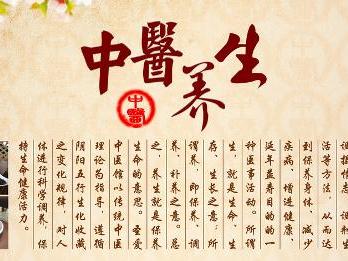 中醫养生
中醫
活等方法，从而达
到保养身体、减少
疾病、增进健康、
延年益寿目的的一
种医事活动。所谓
生，就是生命、生
存、生长之意；所
谓养，即保养、调
养、补养之意。总
之，养生就是保养
生命的意思。圣爱
中医馆以传统中医
理论为指导，遵循
阴阳五行生化收藏
之变化规律，对人
体进行科学调养，保
持生命健康活力。